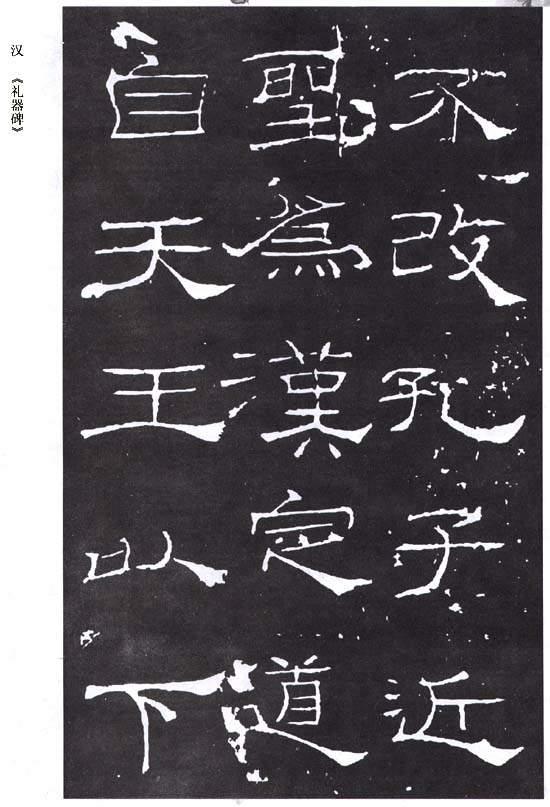 不改孔子近
聖為漢定道
自天王以下
汉 《礼器碑》